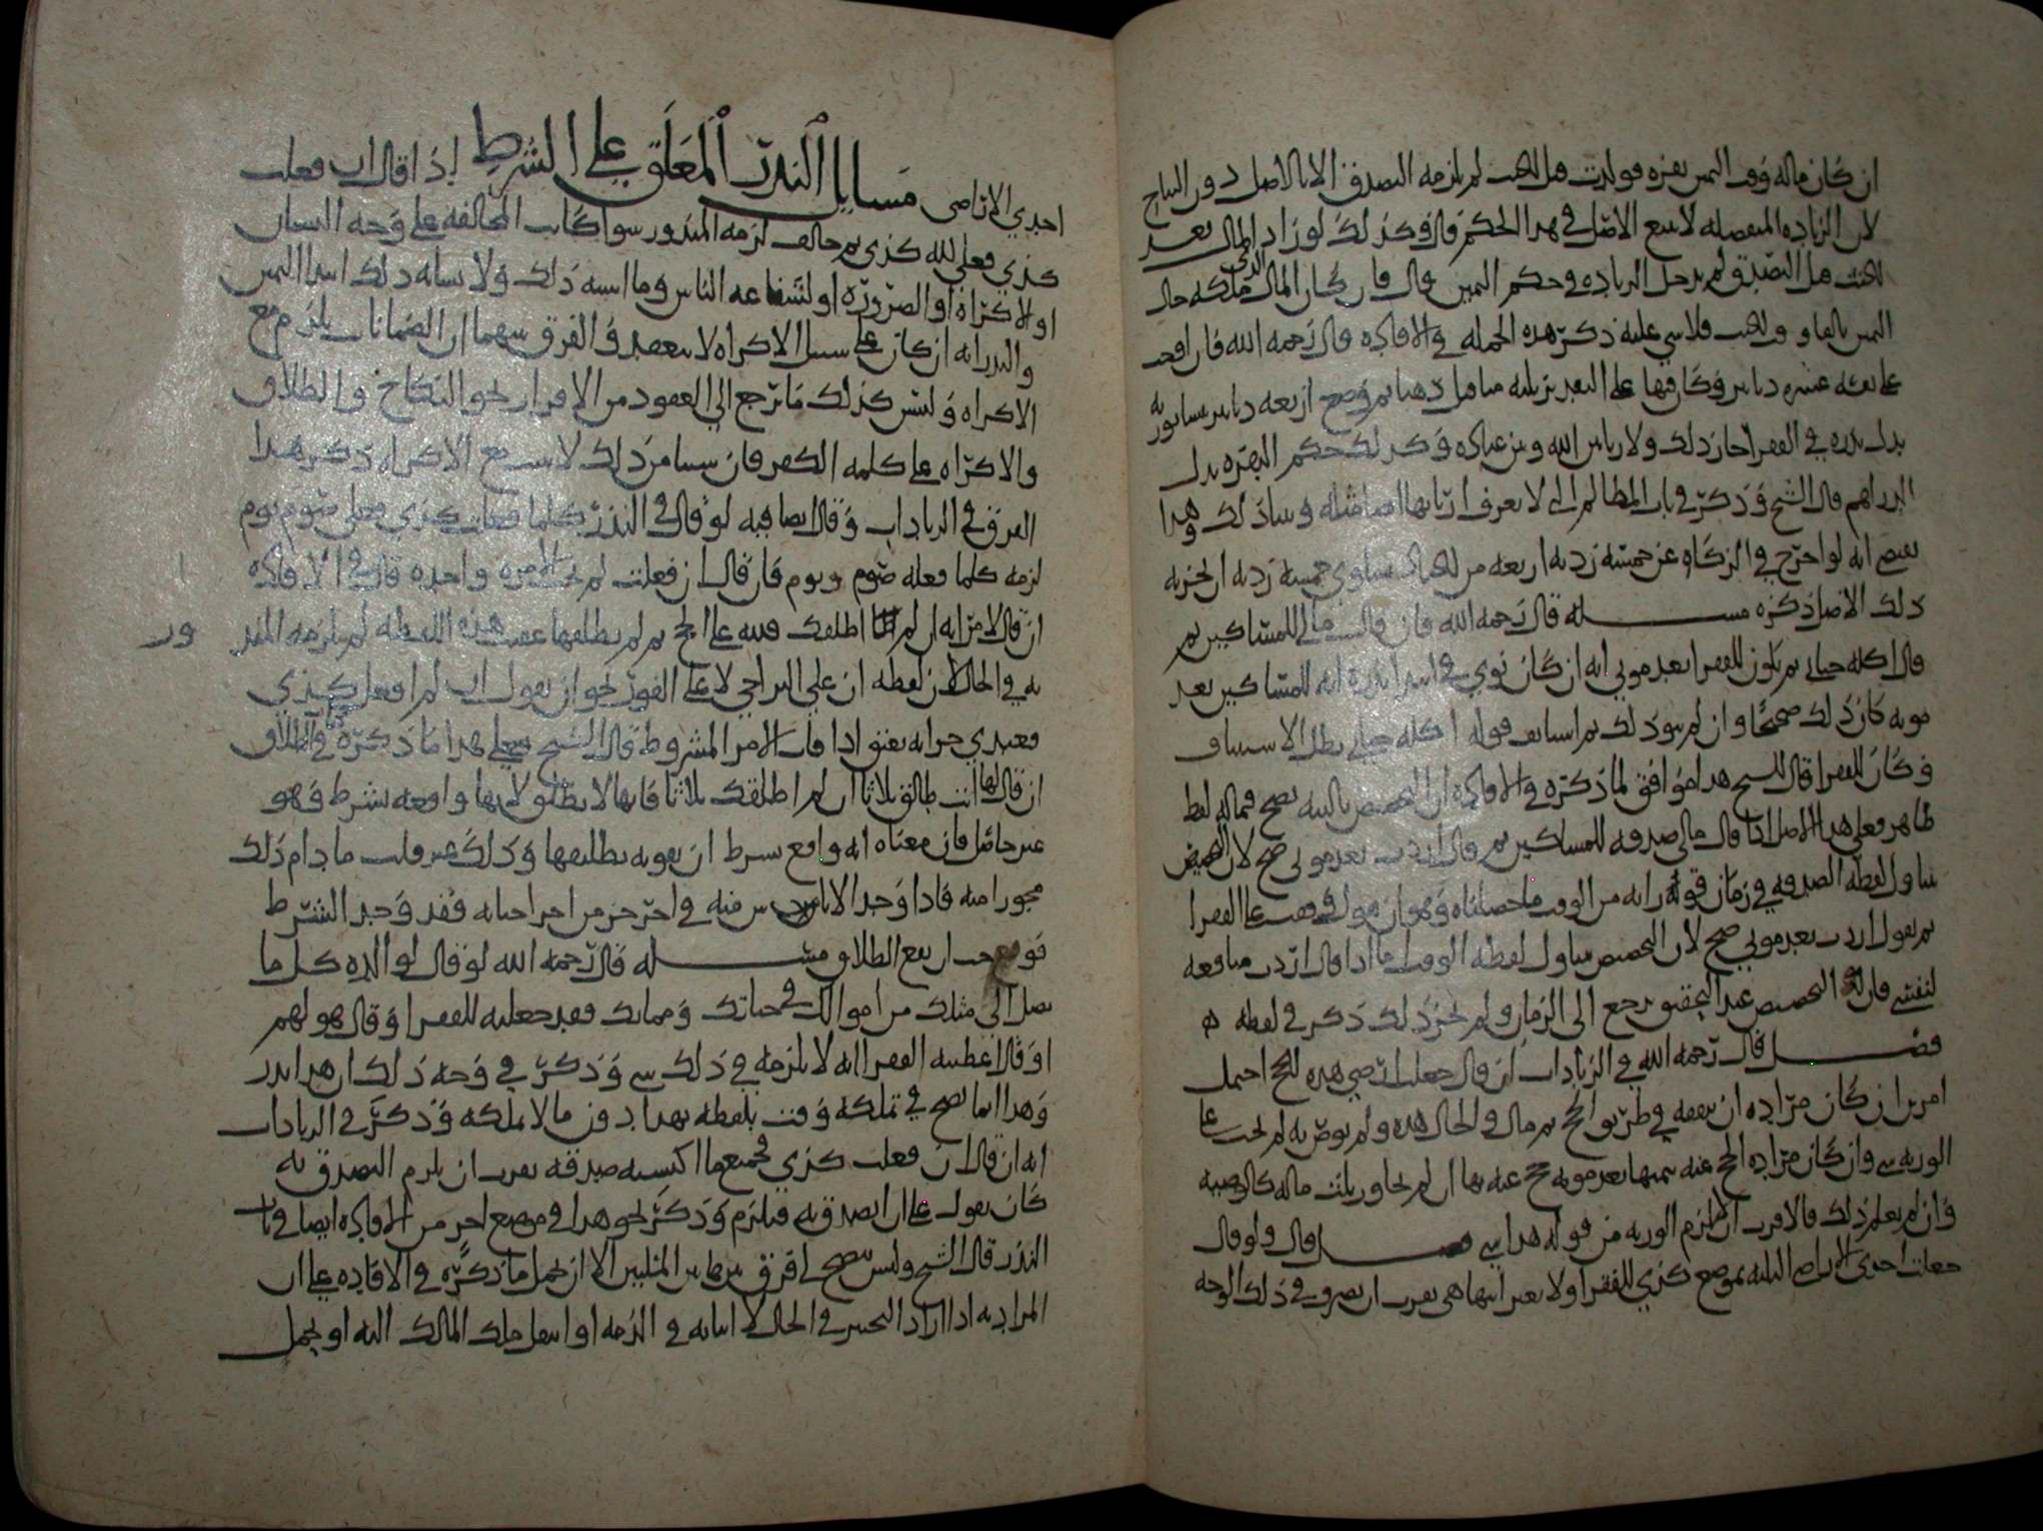 ان كان ماله وقت اليمين بقره فولدت قبل الحنث لم يلزمه التصدق الا بالاصل دون النتاج
لان الزياده المنفصله لا تتبع الاصل في هذا الحكم قال وكذلك لو زاد المال بعد
الحنث قبل التصدق لم يدخل الزياده في حكم اليمين قال فان كان المال الذي ملكه حال
اليمين تالفا وقت الحنث فلا شي عليه ذكر هذه الجمله في الافاده قال رحمه الله فان
على نفسه عشره دنانير وكان فيها على النقد نيسابوريه
بدل نذره في الفقرا جاز ذلك ولا باس الله وبين عباده وكذلك حكم البصره بدل
الدراهم قال الشيخ وذكر في باب المظالم التي لا يعرف اربابها ايضا مثله وبينا ذلك وهذا
يقتضي انه لو اخرج في الزكاه عن خمسه رديه اربعه من الجياد تساوي خمسه رديه ان يجزيه
ذلك الاصل ذكره مسله قال رحمه الله فان قال مالي للمساكين ثم
قال اكله حياتي ثم يكون للفقرا بعد موتي انه ان كان نوى في ابتدا نذره انه للمساكين بعد
موته كان ذلك صحيحا وان لم ينو ذلك ثم استانف قوله اكله حياتي بطل الاستيناف
وكان للفقرا قال الشيخ هذا موافق لما ذكره في الافاده ان التخصيص بالنيه يصح فيما له لفظ
ظاهر فعلى هذا الاصل اذا قال مالي صدقه للمساكين ثم قال اردت بعد موتي صح لان التخصيص
تناول لفظه الصدقه في زمان قوله وقفت على الفقرا
ثم يقول اردت بعد موتي صح لان التخصيص تناول لفظه الوقف فاما اذا قال اردت منافعه
لنفسي فان التخصيص عند التحقيق يرجع الى الزمان ولم يجز ذلك ذكر في لفظه
فصل قال رحمه الله في الزيادات ان قال جعلت ارضي هذه للحج احتمل
امرين ان كان مراده ان ينفقه في طريق الحج ثم مات والحال هذه ولم يوص به لم يجب على
الورثه شي وان كان مراده الحج عنه بثمنها بعد موته حج عنه بها ان لم يجاوز ثلث ماله كالوصيه
وان لم يعلم ذلك فالاقرب الا يلزم الورثه من قوله هذا شي فصل قال ولو قال
جعلت احدى الاراضي الثلثه بموضع كذي للفقرا ولا يعبر ايتها هي يقرب ان يصرف في ذلك الوجه
احدى الاراضي مسايل النذر المعلق على الشرط اذا قال ان فعلت
كذي فعلي لله كذي ثم خالف لزمه المنذور سوا كانت المخالفه على وجه النسيان
او الاكراه او الضروره او لشفاعه الناس وما اشبه ذلك ولا يشابه ذلك ابتدا اليمين
والنذر انه ان كان على سبيل الاكراه لا ينعقد والفرق بينهما ان الضمانات يلزم مع
الاكراه وليس كذلك ما ترجع الى العقود من الاقرار نحو النكاح والطلاق
والاكراه على كلمه الكفر فان شيئا من ذلك لا يثبت مع الاكراه ذكر هذا
الفرق في الزيادات وقال ايضا فيه لو قال في النذر كلما فعلت كذي فعلي صوم يوم
لزمه كلما فعله صوم يوم فان قال ان فعلت لم يحنث الا مره واحده قال في الافاده
ان قال لامراته ان لم اطلقك فلله علي الحج ثم لم يطلقها عقيب هذه اللفظه لم يلزمه المنذور
به في الحال لان لفظه ان على التراخي لا على الفور نحو ان يقول ان لم افعل كذي
فعبدي حر انه يعتق اذا فات الامر المشروط قال الشيخ فعلى هذا ما ذكره في الطلاق
ان قال لها انت طالق ثلاثا ان لم اطلقك ثلاثا فانها لا تطلق لانها واقعه بشرط وهو
غير حاصل فان معناه انه واقع بشرط ان يفوته تطليقها وذلك غير فايت ما دام ذلك
مجوزا منه فاذا وجد الاياس منه في اخر جزء من اجزا حياته فقد وجد الشرط
فوجب ان يقع الطلاق مسله قال رحمه الله لو قال لوالده كل ما
يصل الى مثلك من اموالك في حياتك ومماتك فقد جعلته للفقرا وقال هو لهم
او قال اعطيته الفقرا انه لا يلزمه في ذلك شي وذكر في وجه ذلك ان هذا نذر
وهذا انما يصح في تملكه وقت بلفظه بهذا دون ما لا يملكه وذكر في الزيادات
انه ان قال ان فعلت كذي فجميع ما اكتسبه صدقه يقرب ان يلزم التصدق به
كان يقول علي ان اتصدق به فيلزم وذكر نحو هذا في موضع اخر من الافاده ايضا في باب
النذر قال الشيخ وليس يتضح لي فرق بين هاتين المسلتين الا ان يحمل ما ذكره في الافاده على ان
المراد به اذا اراد التخيير في الحال لا اثباته في الذمه او انتقل ملك المالك اليه او يحمل